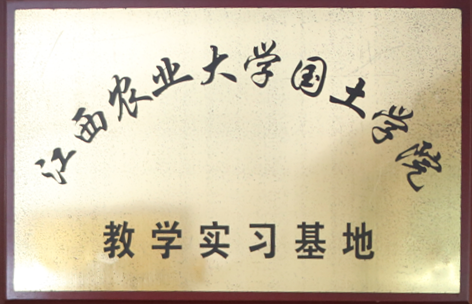 江西农业大学国土学院
教学实习基地